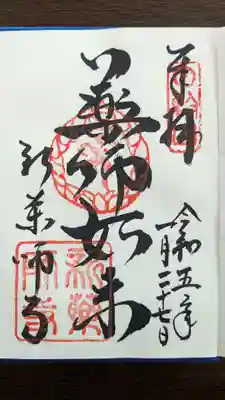 奉拝
令和五年
一月二十七日
薬師如来
新薬師寺